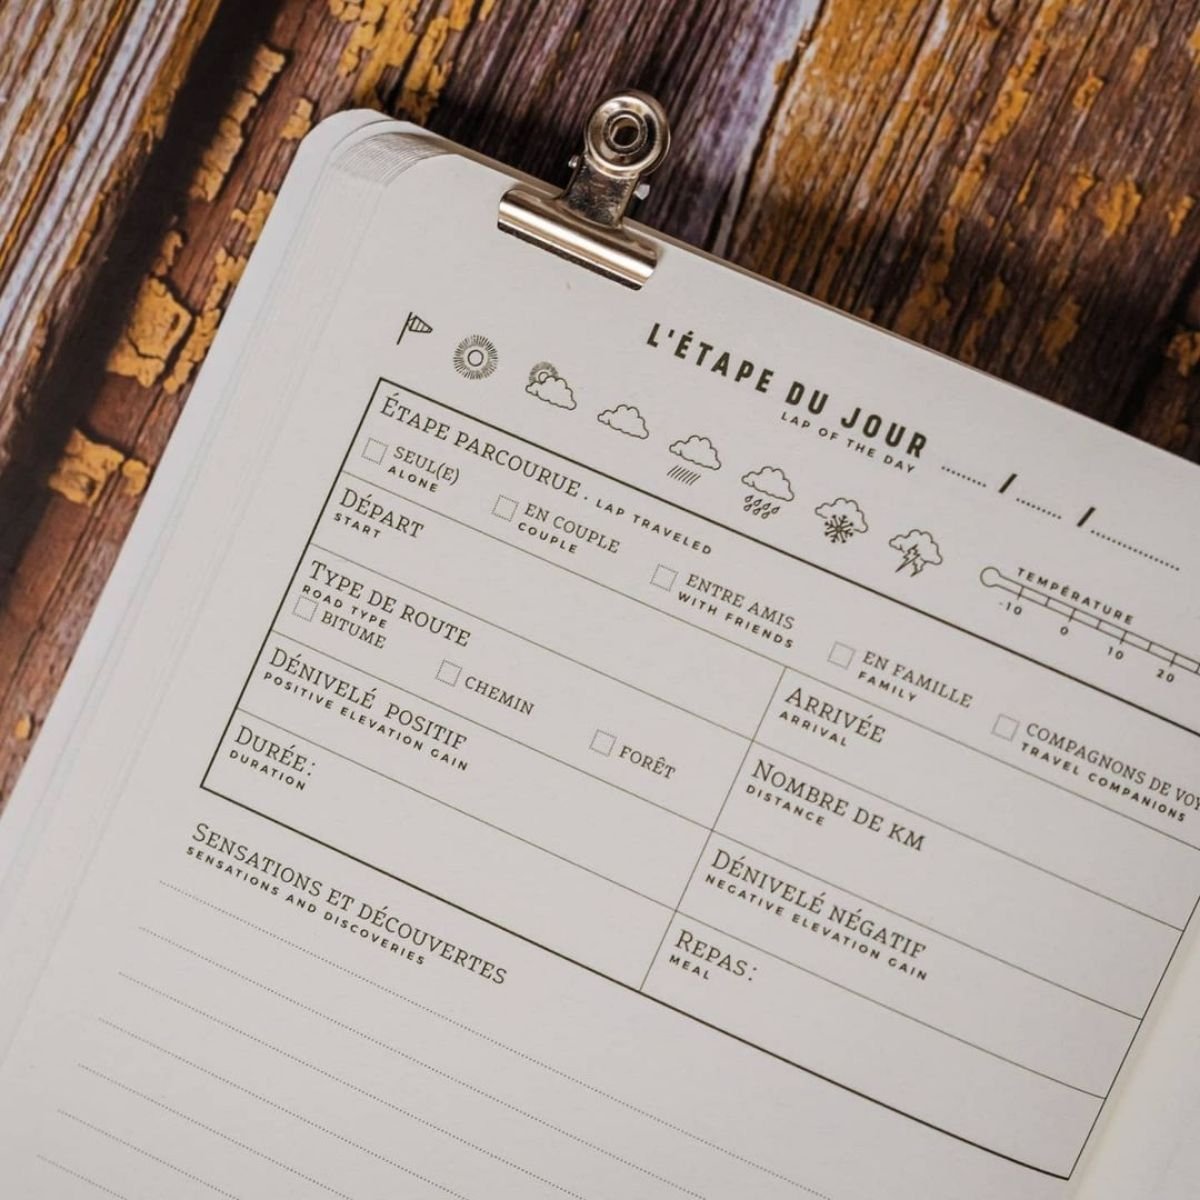 L'ÉTAPE DU JOUR ...... / ...... / ......
LAP OF THE DAY
TEMPÉRATURE
-10 0 10 20
ÉTAPE PARCOURUE . LAP TRAVELED
SEUL(E)
ALONE
EN COUPLE
COUPLE
ENTRE AMIS
WITH FRIENDS
EN FAMILLE
FAMILY
COMPAGNONS DE
TRAVEL COMPANIONS
DÉPART
START
ARRIVÉE
ARRIVAL
TYPE DE ROUTE
ROAD TYPE
BITUME
CHEMIN
FORÊT
NOMBRE DE KM
DISTANCE
DÉNIVELÉ POSITIF
POSITIVE ELEVATION GAIN
DÉNIVELÉ NÉGATIF
NEGATIVE ELEVATION GAIN
DURÉE:
DURATION
REPAS:
MEAL
SENSATIONS ET DÉCOUVERTES
SENSATIONS AND DISCOVERIES